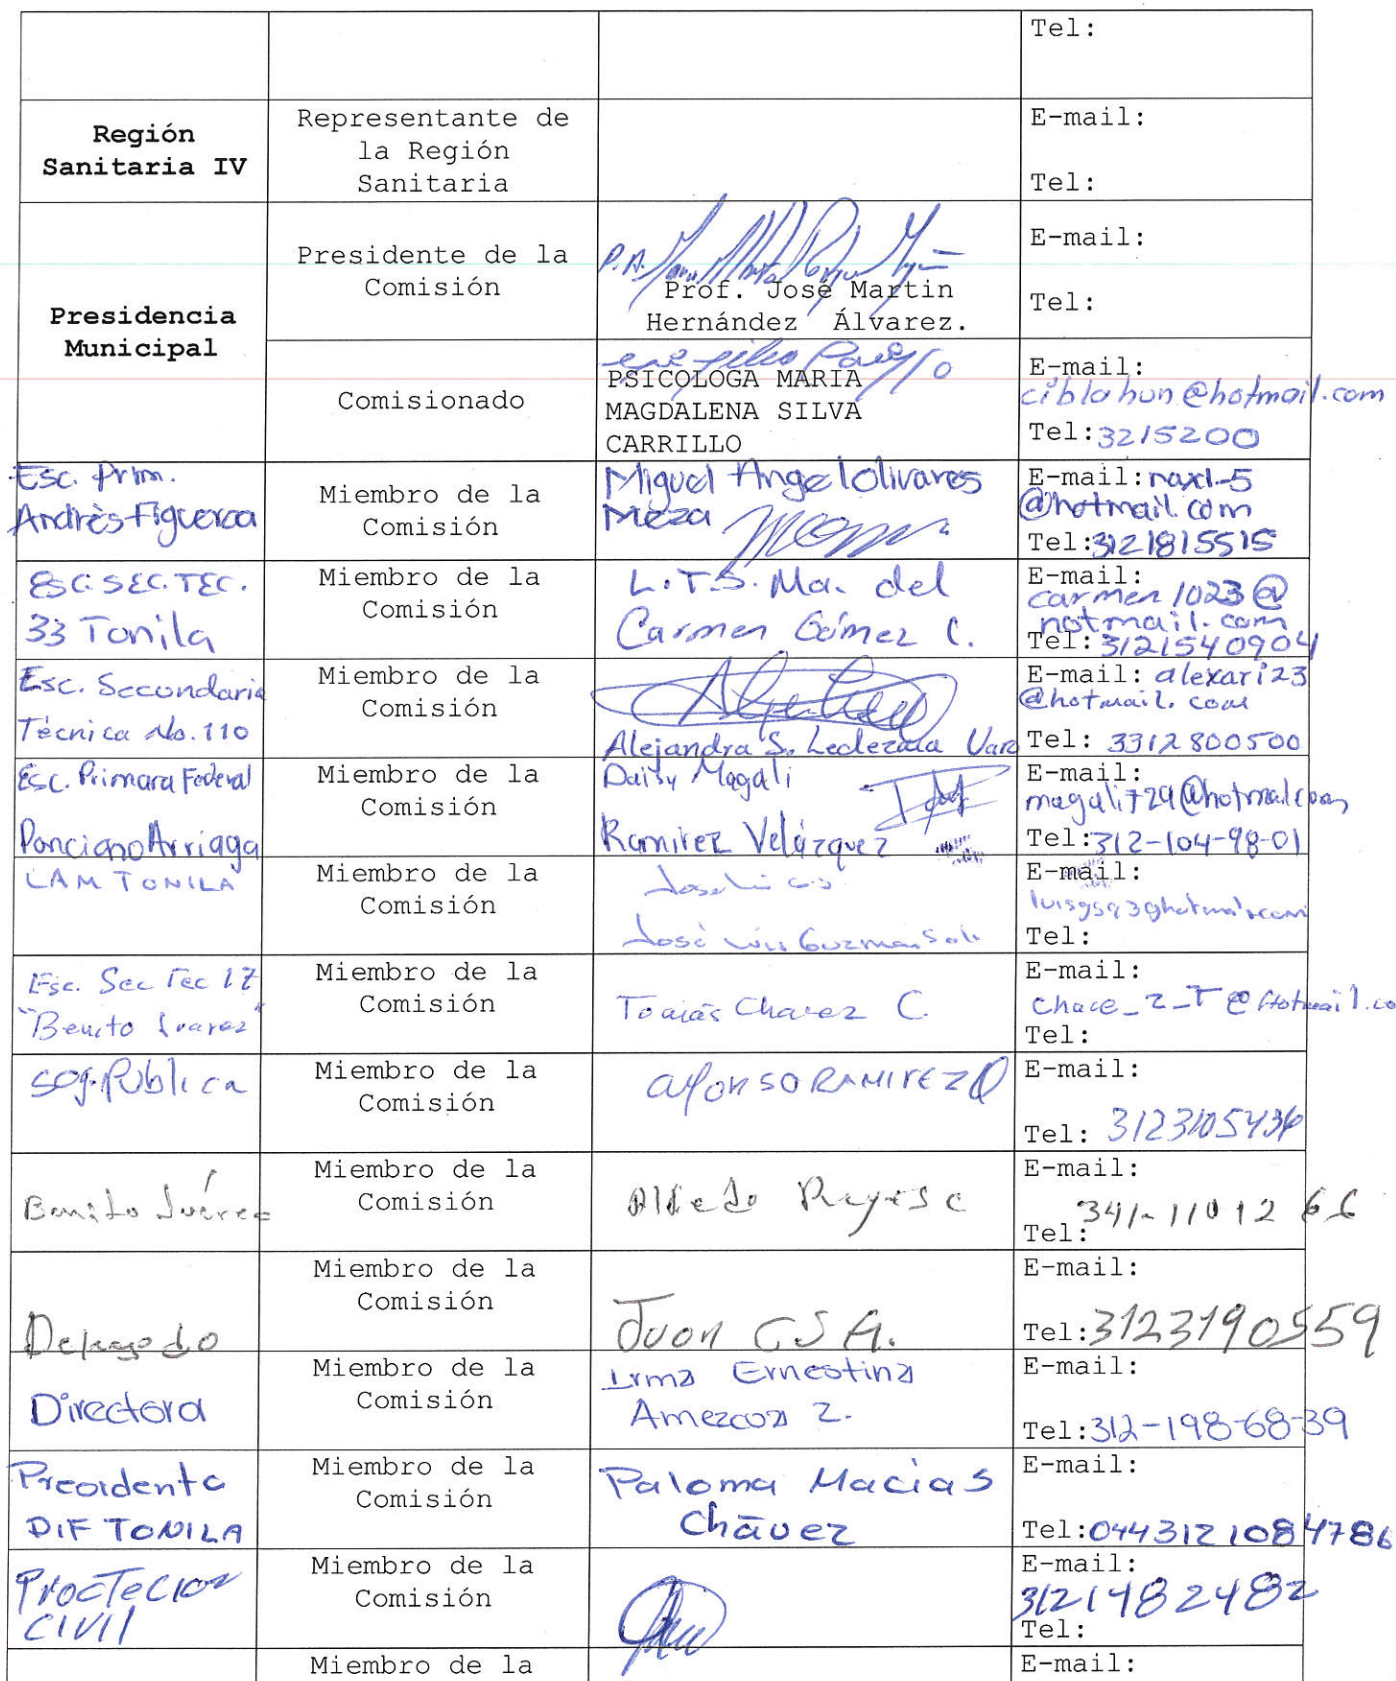 Tel:
Región
Sanitaria IV
Representante de
la Región
Sanitaria
E-mail:
Tel:
Presidencia
Municipal
Presidente de la
Comisión
P.A.
Prof. José Martin
Hernández Álvarez.
E-mail:
Tel:
Comisionado
PSICOLOGA MARIA
MAGDALENA SILVA
CARRILLO
E-mail:
ciblahun@hotmail.com
Tel: 3215200
Esc. Prim.
Andrès Figueroa
Miembro de la
Comisión
Miguel Angel Olivares
Meza
E-mail: naxl-5
@hotmail.com
Tel: 3121815515
ESC. SEC. TEC.
33 Tonila
Miembro de la
Comisión
L.T.S. Ma. del
Carmen Gómez C.
E-mail:
carmen1023@
hotmail.com
Tel: 3121540904
Esc. Secundaria
Técnica No. 110
Miembro de la
Comisión
Alejandra S. Ledezma
E-mail: alexari23
@hotmail.com
Tel: 3312800500
Esc. Primara Federal
Ponciano Arriaga
Miembro de la
Comisión
Daisy Magali
Ramirez Velázquez
E-mail:
magali729@hotmail.com
Tel: 312-104-98-01
LAM TONILA
Miembro de la
Comisión
José Luis Guzman Solis
E-mail:
Tel:
Esc. Sec Tec 17
"Benito Juarez"
Miembro de la
Comisión
Tomás Chavez C.
E-mail:
Chace_2_T@Hotmail.co
Tel:
seg. Publica
Miembro de la
Comisión
alfonso RAMIREZ
E-mail:
Tel: 3123105436
Benito Juárez
Miembro de la
Comisión
Alfredo Reyes C
E-mail:
341-1101266
Tel:
Delegado
Miembro de la
Comisión
Juan C S A.
E-mail:
Tel: 3123190559
Directora
Miembro de la
Comisión
Irma Ernestina
Amezcua Z.
E-mail:
Tel: 312-198-68-39
Presidenta
DIF TONILA
Miembro de la
Comisión
Paloma Macias
Chávez
E-mail:
Tel: 0443121084786
ProcTecion
CIVIl
Miembro de la
Comisión
E-mail:
3121482482
Tel:
Miembro de la
E-mail: